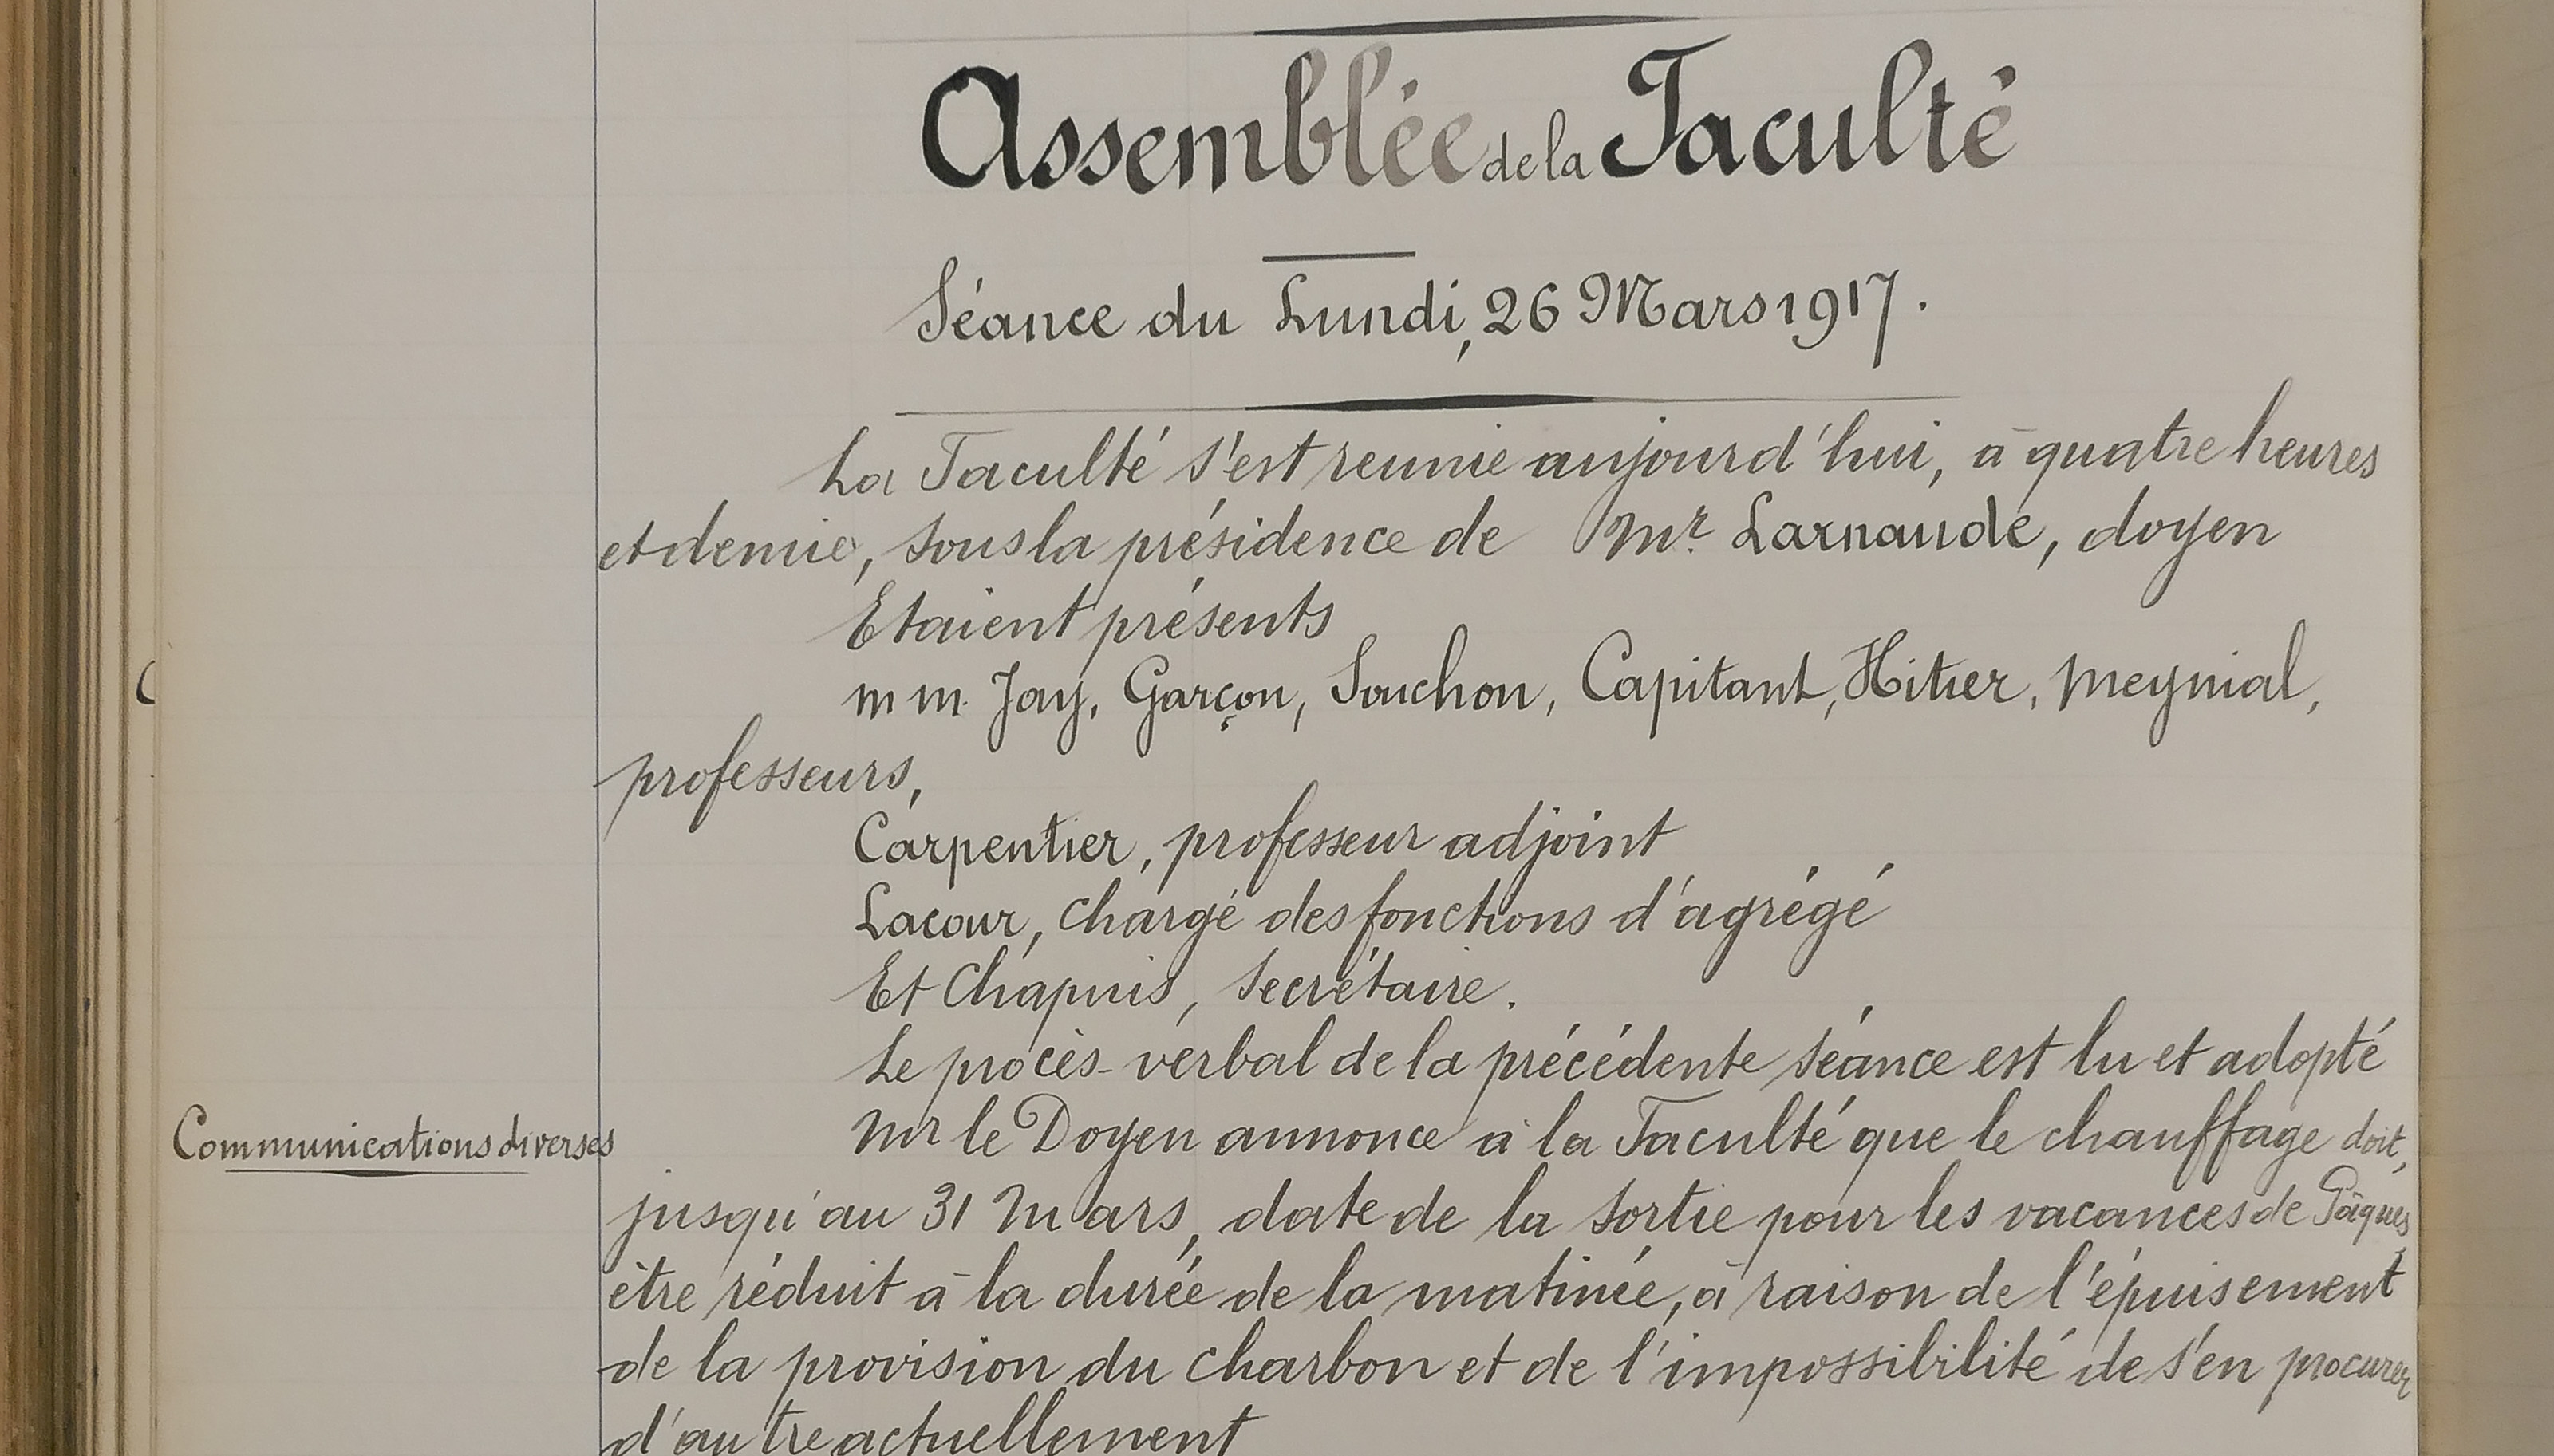 Assemblée de la Faculté
Séance du Lundi, 26 Mars 1917.
La Faculté s'est reunie aujourd'hui, à quatre heures
et demie, sous la présidence de Mr. Larnaude, doyen
Etaient présents
mm. Jay, Garçon, Souchon, Capitant, Hitier, Meynial,
professeurs,
Carpentier, professeur adjoint
Lacour, chargé des fonctions d'agrégé
Et Chapuis, Secrétaire.
Le procès-verbal de la précédente séance est lu et adopté
Communications diverses
Mr le Doyen annonce à la Faculté que le chauffage doit,
jusqu'au 31 Mars, date de la sortie pour les vacances de Pâques,
être réduit à la durée de la matinée, à raison de l'épuisement
de la provision du charbon et de l'impossibilité de s'en procurer
d'autre actuellement